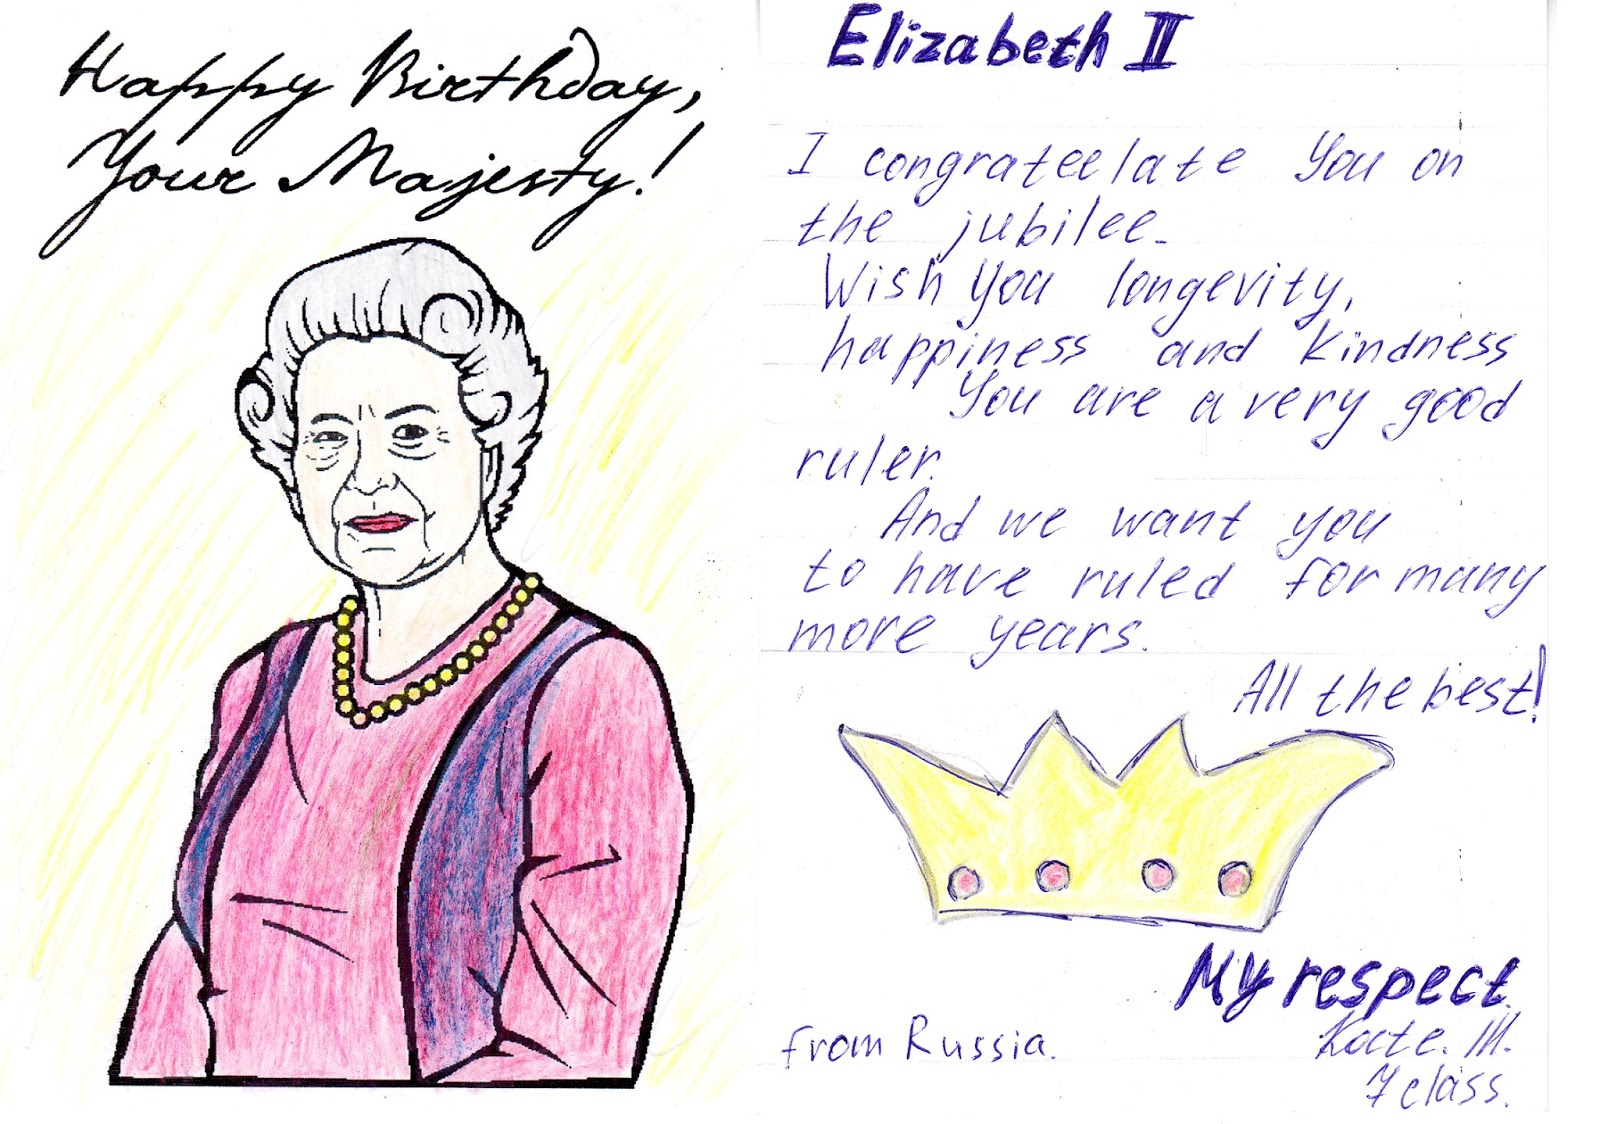 Happy Birthday,
Your Majesty!
Elizabeth II
I congrateelate You on
the jubilee.
Wish You longevity,
happiness and kindness
You are a very good
ruler.
And we want you
to have ruled for many
more years.
All the best!
My respect.
from Russia.
Kate. M.
7 class.